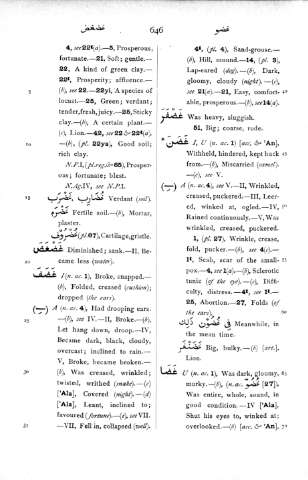 غضض
646
غضو
4, see 22t(a).—5, Prosperous,
fortunate.—21, Soft; gentle.—
22, A kind of green clay.—
22t, Prosperity; affluence.—
(b), see 22.—22yi, A species of
locust.—25, Green; verdant;
tender, fresh, juicy.—25, Sticky
clay.—(b), A certain plant.—
(c), Lion.—42, see 22 & 22t(a).—
(b), (pl. 22ya), Good soil;
rich clay.
Prosper-
ous; fortunate; blest.
N.Ag. IV, see N.P.I.
Verdant (soil).
Fertile soil.—(b), Mortar,
plaster.
Cartilage, gristle.
Diminished; sank.—II. Be-
came less (water).
I (n. ac. 1), Broke, snapped.—
(b), Folded, creased (cushion);
dropped (the ears).
A (n. ac. 4), Had drooping ears.
—(b), see IV.—II, Broke.—(b),
Let hang down, droop.—IV,
Became dark, black, cloudy,
overcast; inclined to rain.—
V, Broke, became broken.—
(b), Was creased, wrinkled;
twisted, writhed (snake).—(c)
['Ala], Covered (night).—(d)
['Ala], Leant, inclined to;
favoured (fortune).—(e), see VII.
—VII, Fell in, collapsed (well).
4t, (pl. 4), Sand-grouse.—
(b), Hill, mound.—14, (pl. 3),
Lap-eared (dog).—(b), Dark,
gloomy, cloudy (night).—(c),
see 21(c).—21, Easy, comfort-
able, prosperous.—(b), see 14(a).
غضفر
Was heavy, sluggish.
51, Big; coarse, rude.
غضن
I, U (n. ac. 1) [acc. & 'An],
Withheld, hindered, kept back
from.—(b), Miscarried (camel).
—(c), see V.
A (n. ac. 4), see V.—II, Wrinkled,
creased, puckered.—III, Leer-
ed, winked at, ogled.—IV,
Rained continuously.—V, Was
wrinkled, creased, puckered.
1, (pl. 27), Wrinkle, crease,
fold, pucker.—(b), see 4(c).—
1t, Scab, scar of the small-
pox.—4, see 1(a).—(b), Sclerotic
tunic (of the eye).—(c), Diffi-
culty, distress.—4t, see 1t.—
25, Abortion.—27, Folds (of
the ears).
في غضون ذلك Meanwhile, in
the mean time.
غضنفر Big, bulky.—(b) [art.],
Lion.
غضا U (n. ac. 1), Was dark, gloomy,
murky.—(b), (n. ac. غضو [27]),
Was entire, whole, sound, in
good condition.—IV ['Ala],
Shut his eyes to, winked at;
overlooked.—(b) ['An],